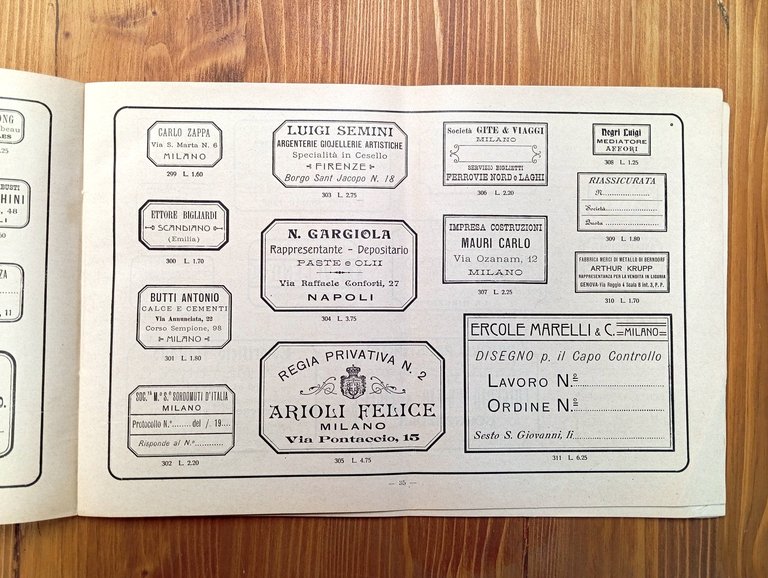 ONG
beau
LES
.25
BUSTI
CHINI
, 48
LI
50
ZA
, 11
O.
CARLO ZAPPA
Via S. Marta N. 6
MILANO
299 L. 1.60
ETTORE BIGLIARDI
SCANDIANO
(Emilia)
300 L. 1.70
BUTTI ANTONIO
CALCE E CEMENTI
Via Annunciata, 22
Corso Sempione, 98
MILANO
301 L. 1.80
SOC.TÀ M.º S.º SORDOMUTI D'ITALIA
MILANO
Protocollo N.º........ del / 19....
Risponde al N.º............
302 L. 2.20
LUIGI SEMINI
ARGENTERIE GIOJELLERIE ARTISTICHE
Specialità in Cesello
FIRENZE
Borgo Sant Jacopo N. 18
303 L. 2.75
N. GARGIOLA
Rappresentante - Depositario
PASTE e OLII
Via Raffaele Conforti, 27
NAPOLI
304 L. 3.75
REGIA PRIVATIVA N. 2
ARIOLI FELICE
MILANO
Via Pontaccio, 15
305 L. 4.75
Società GITE & VIAGGI
MILANO
SERVIZIO BIGLIETTI
FERROVIE NORD e LAGHI
306 L. 2.20
IMPRESA COSTRUZIONI
MAURI CARLO
Via Ozanam, 12
MILANO
307 L. 2.25
Negri Luigi
MEDIATORE
AFFORI
308 L. 1.25
RIASSICURATA
N.
Società
Busta
309 L. 1.80
FABBRICA MERCI DI METALLO DI BERNDORF
ARTHUR KRUPP
RAPPRESENTANZA PER LA VENDITA IN LIGURIA
GENOVA-Via Roggio 4 Scala 8 int. 3, P. P.
310 L. 1.70
ERCOLE MARELLI & C. MILANO
DISEGNO p. il Capo Controllo
LAVORO N.º
ORDINE N.º
Sesto S. Giovanni, li
311 L. 6.25
— 35 —